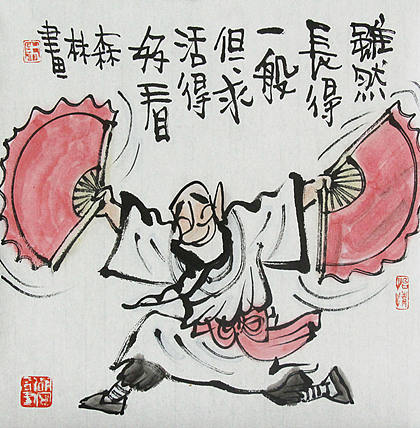 雖然
長得
一般
但求
活得
好看
森林畫